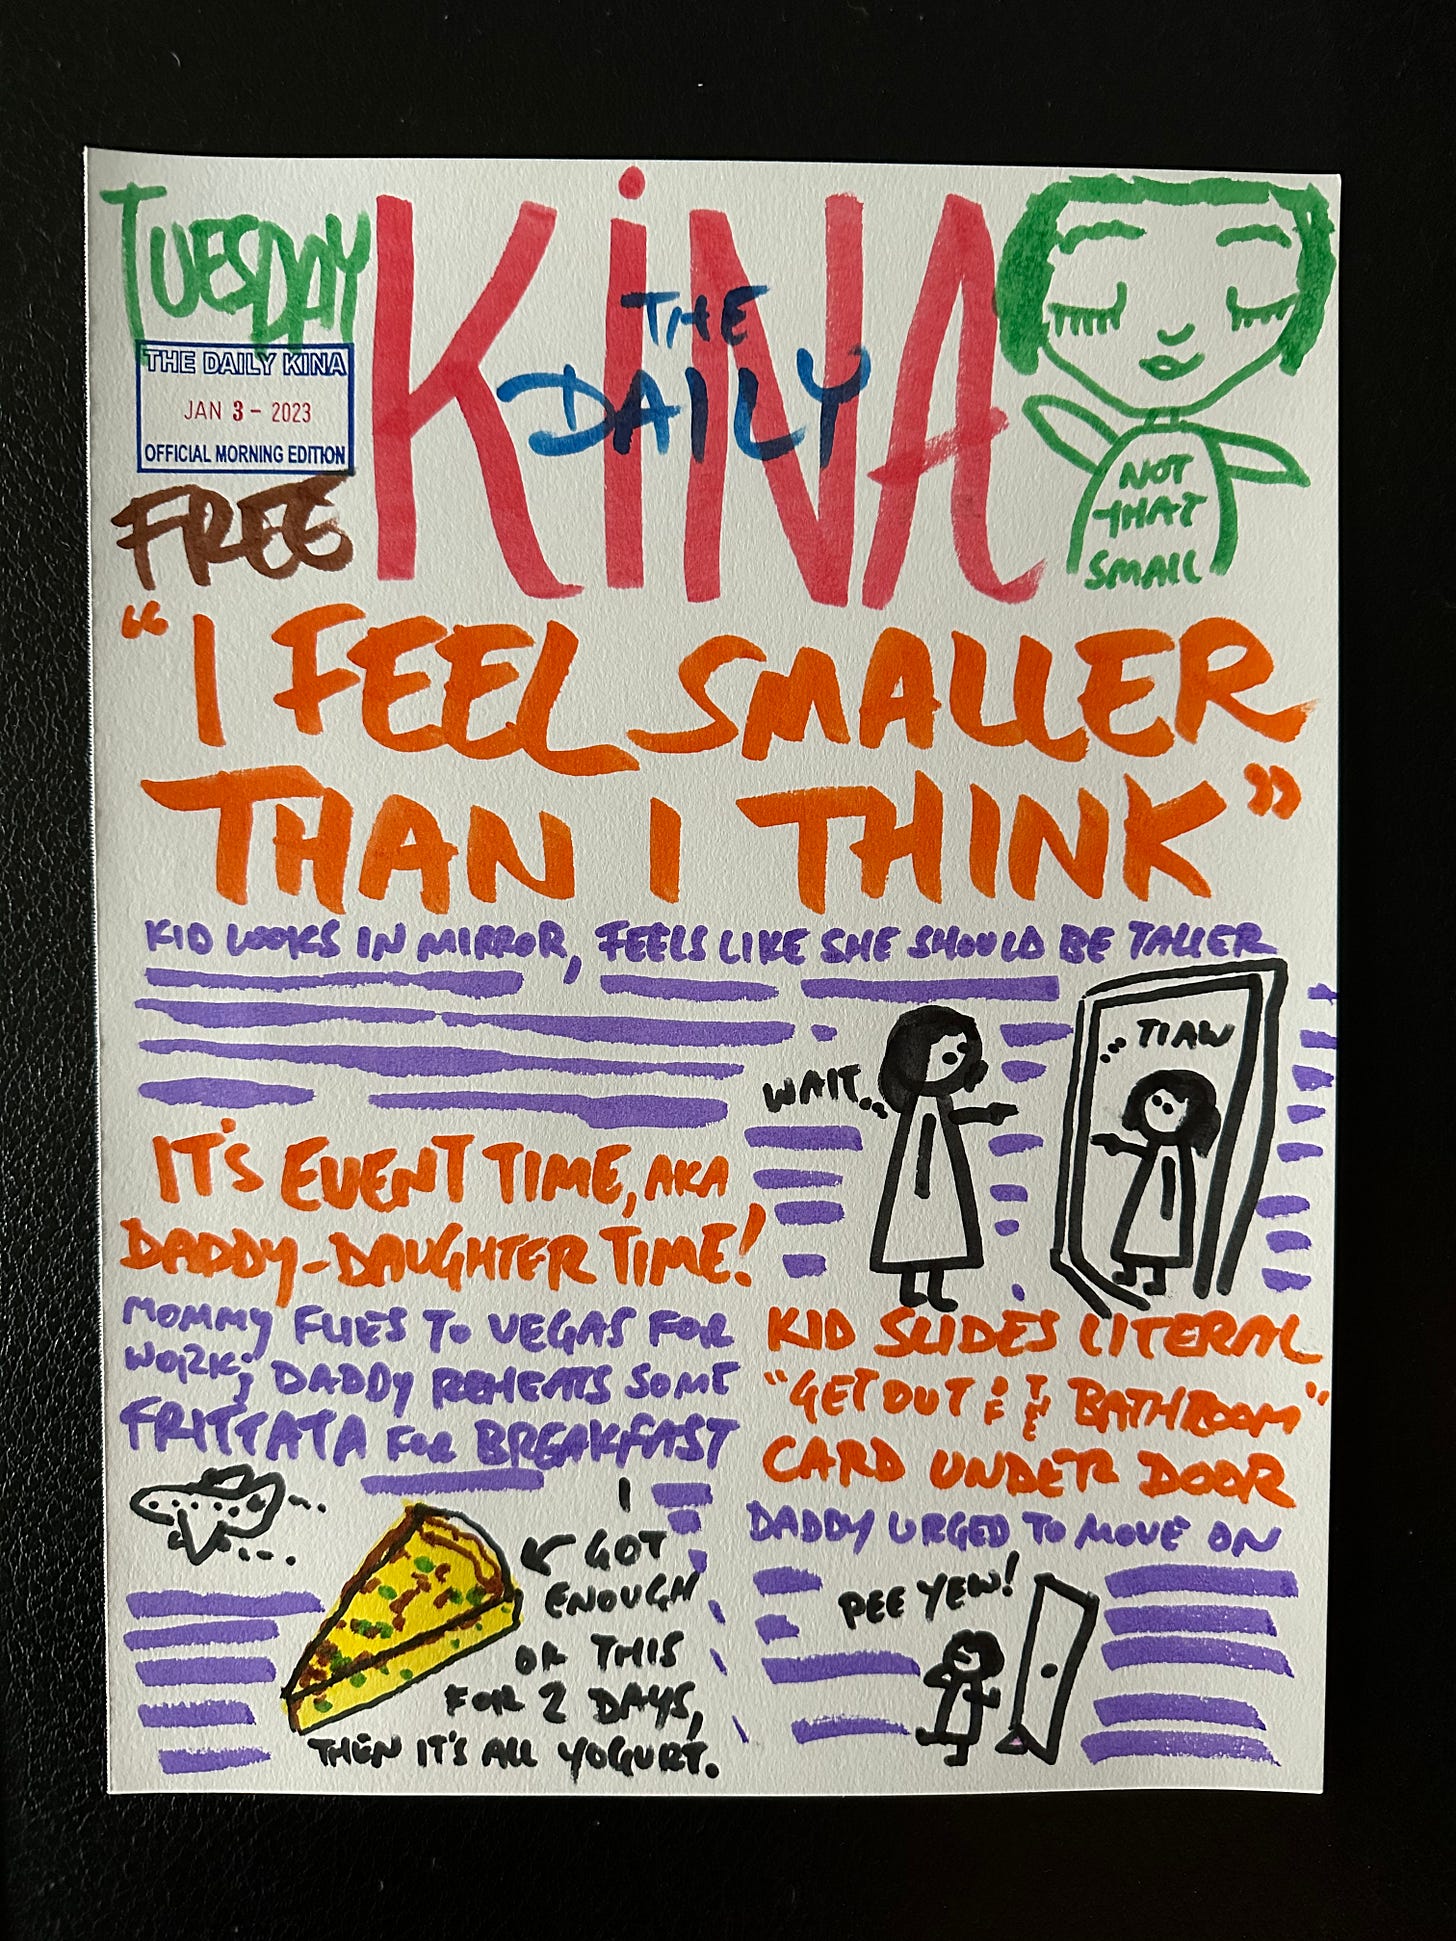 TUESDAY
THE DAILY KINA
JAN 3 - 2023
OFFICIAL MORNING EDITION
FREE
KiNA
THE
DAILY
NOT
THAT
SMALL
"I FEEL SMALLER
THAN I THINK"
KID LOOKS IN MIRROR, FEELS LIKE SHE SHOULD BE TALLER
WAIT...
...TIAW
IT'S EVENT TIME, AKA
DADDY-DAUGHTER TIME!
MOMMY FLIES TO VEGAS FOR
WORK; DADDY REHEATS SOME
FRITTATA FOR BREAKFAST
I
GOT
ENOUGH
OF THIS
FOR 2 DAYS,
THEN IT'S ALL YOGURT.
KID SLIDES LITERAL
"GET OUT OF THE BATHROOM"
CARD UNDER DOOR
DADDY URGED TO MOVE ON
PEE YEW!